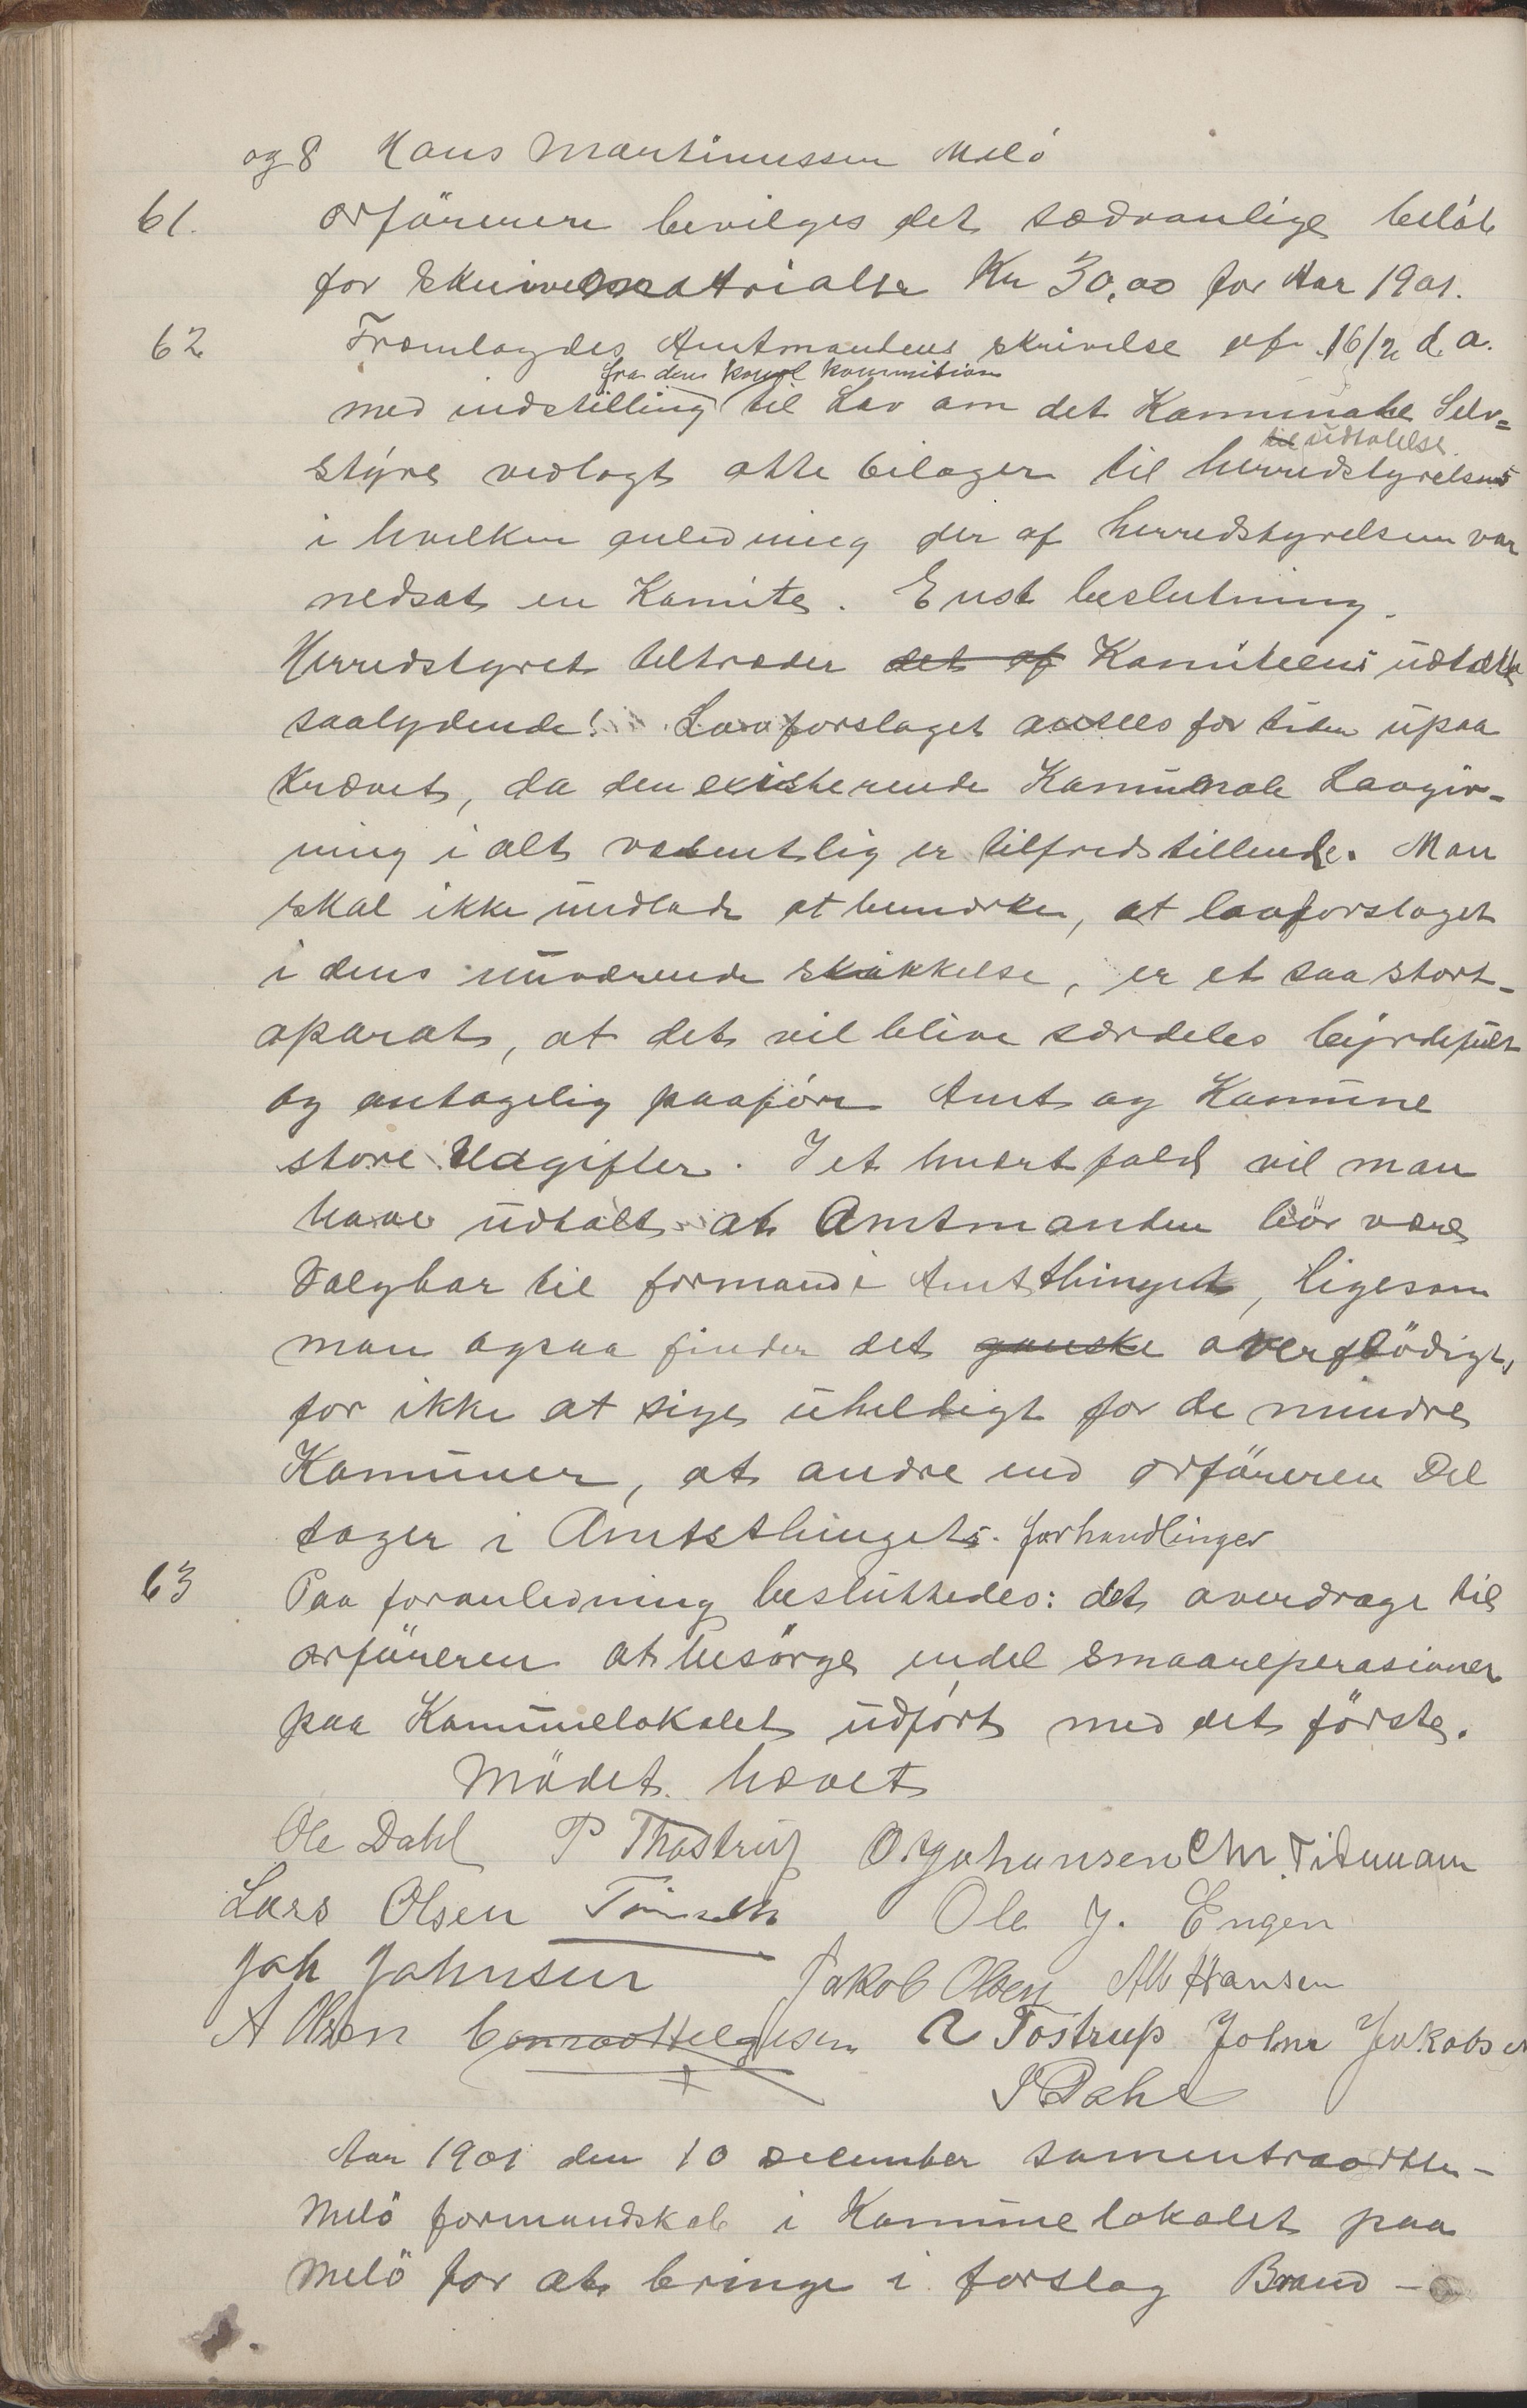 og 8 Hans Martinussen Melö
61. orförerern bevilges det sædvanlige beløb
for Skrivematrialer Kr 30,00 for Aar 1901.
62 Fremlagdes Amtmandens skrivelse af 16/2 d. a.
fra den kongl kommision
med indstilling til Lov om det Kommunale Selv=
til udtalelse.
styre vedlagt otte bilager til herredstyrelsens
i hvilken anledning der af herredstyrelsen var
nedsat en Komite. Enst beslutning.
Herredstyret tiltræder det af Komiteens udtalte
saalydende! Lovforslaget ansees for tiden upaa
krævet, da den existerende Kommunale Lovgiv-
ning i alt vesentlig er tilfredstillende. Man
skal ikke undlade at bemærke, at lovforslaget
i dens nuværende skikkelse, er et saa stort-
aparat, at det vil blive særdeles byrdefult
og antagelig paaføre Amt og Kommune
store Udgifter. I et hvert fald vil man
have udtalt at Amtmanden bör være
Valgbar til formand i Amtthinget, ligesom
man ogsaa finder det ganske overflödigt,
for ikke at sige uheldigt for de mindre
Kommuner, at andre end orföreren Del
tager i Amtsthingets forhandlinger
63 Paa foranledning besluttedes: det overdrage til
orföreren at besörge endel smaareperasioner
paa Kommunelokalet udfört med det förste.
Mödet hævet
Ole Dahl P Thostrup O. Johansen Chr. Tidemann
Lars Olsen Ole J. Engen
Joh Johnsen Jakob Olsen Alb Hansen
A Olsen Conrad Helgesen R Tostrup John Jakobsen
P Dahl
Aar 1901 den 10 December sammentraadte-
Melö formandskab i Kommunelokalet paa
Melö for at bringe i forslag Brand-